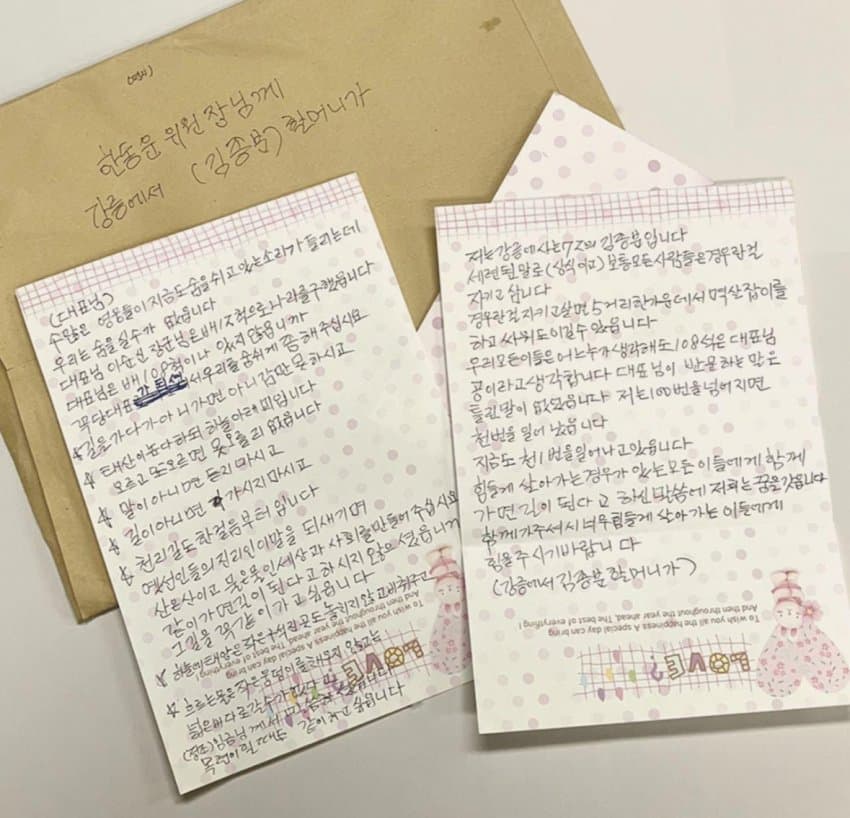 한동훈 위원장님께
강릉에서 (김종분) 할머니가
(대표님)
수많은 영웅들이 지금도 숨을 쉬고 있는 소리가 들리는데
우리는 숨을 쉴수가 없습니다
대표님 이순신 장군님은 배 12척으로 나라를 구했습니다
대표님은 배 108척이나 있지 않습니까
꼭 당대표 서 우리를 숨쉬게 좀 해주십시요
길을 가다가 아니가면 아니감만 못하시고
태산이 높다하되 하늘아래 뫼입니다
오르고 또 오르면 못오를리 없습니다
말이 아니면 듣지 마시고
길이 아니면 가시지 마시고
천리길도 한걸음부터 입니다
옛선인들의 진리인 이말을 되새기며
산은산이고 물은물인 세상과 사회를 만들어 주십시요
같이가면 길이 된다고 하시지 않으셨습니까
그길을 꼭 같이 가고 싶습니다
하늘에 태양은 작은 곳도 놓치지 않고 비춰주고
흐르는 물은 작은 웅덩이를 채우지 않고는
넓은바다로
(정조)임금님께서
목련이 필때는 같이 하고 싶습니다
To wish you all the happiness A special day can bring
And then throughout the year ahead, The best of everything!
LOVE?
저는 강릉에 사는 72의 김종분입니다
세련된 말로 (상식이고) 보통 모든 사람들은 경우란걸
지키고 삽니다
경우란걸 지키고 살면 5거리 한가운데서 멱살잡이를
하고 싸워도 이길수 있습니다
우리 모든이들은 어느누가 생각해도 108석은 대표님
공이라고 생각합니다 대표님이 반문하는 말은
틀린말이 없었습니다 저는 100번을 넘어지면
천번을 일어 났습니다
지금도 천1번을 일어나고 있습니다
힘들게 살아가는 경우가 있는 모든 이들에게 함께
가면 길이 된다고 하신 말씀에 저희는 꿈을 갖습니다
함께 가주셔서 너무 힘들게 살아가는 이들에게
힘을 주시기 바랍니다
(강릉에서 김종분 할머니가)
To wish you all the happiness A special day can bring
And then throughout the year ahead, The best of everything!
LOVE?